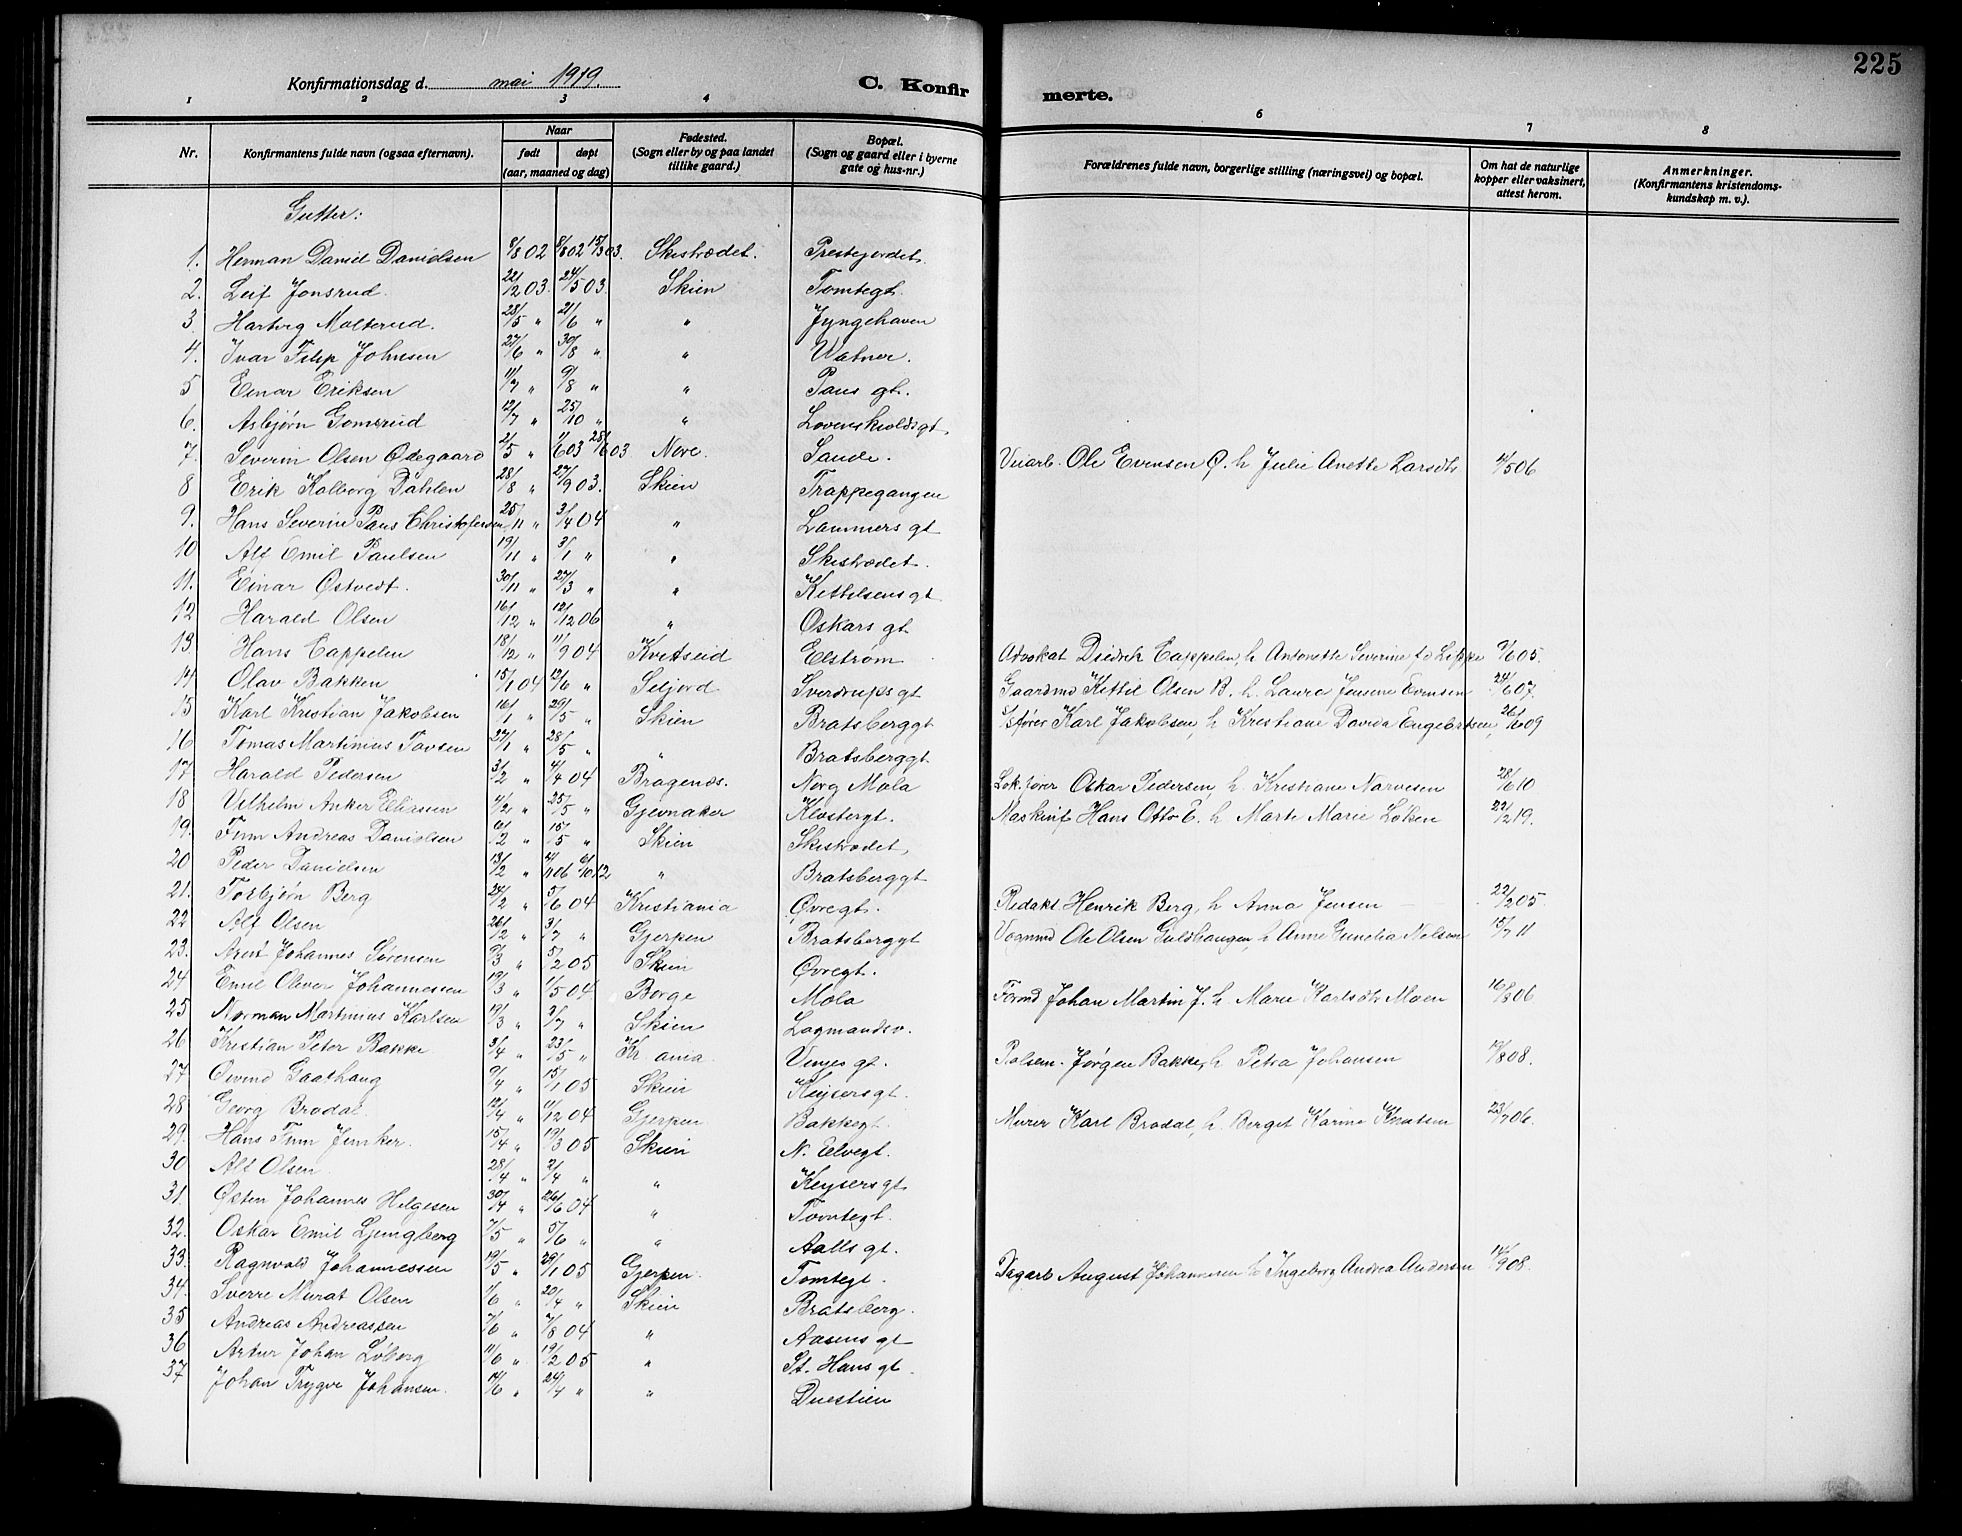 225
Konfirmationsdag d. mai 1919.
C. Konfirmerte.
1 2 3 4 6 7 8
Nr. Konfirmantens fulde navn (ogsaa efternavn). Naar født døpt (aar, maaned og dag) Fødested. (Sogn eller by og paa landet tillike gaard.) Bopæl. (Sogn og gaard eller i byerne gate og hus-nr.) Forældrenes fulde navn, borgerlige stilling (næringsvei) og bopæl. Om hat de naturlige kopper eller vaksinert, attest herom. Anmerkninger. (Konfirmantens kristendomskundskap m. v.).
Gutter:
1. Herman Daniel Danielsen 8/8 02 8/8 02 15/3 03. Skistrædet. Prestejordet.
2. Leif Jonsrud. 22/12 03. 24/5 03. Skien Tomtegt.
3. Hartvig Molterud. 28/5 " 21/6 " " Jyngehaven
4. Ivar Filip Johnsen 27/6 " 30/8 " "
5 Einar Eriksen 11/7 " 9/8 " " Paus gt.
6. Asbjørn Gomsrud 12/7 " 25/10 " " Løvenskioldsgt.
7. Severin Olsen Ødegaard 2/5 " 1/6 03 28/6 03 Nore. Sande. Veiarb. Ole Evensen Ø. h Julie Anette Larsdtr 4/5 06
8 Erik Kolborg Dahlen 28/8 " 27/9 03. Skien Trappegangen
9. Hans Severin Paus Christofersen 25/11 " 3/4 04 " Lammers gt
10. Alf Emil Paulsen 19/11 " 3/1 " " Skistrædet.
11. Einar Østvedt. 30/11 " 27/3 " " Kittilsens gt
12 Harald Olsen 16/12 " 12/12 06 " Oskars gt.
13. Hans Cappelen 18/12 " 11/9 04 Kvitseid Elstrøm Advokat Didrik Cappelen, h Antonette Severine f. Lippe 9/6 05.
14 Olav Bakken 15/1 04 12/6 " Seljord Sverdrups gt Gaardmd Kittil Olsen B. h. Laura Jensine Evensen 24/6 07.
15 Karl Kristian Jakobsen 16/1 " 29/5 " Skien Bratsberggt fører Karl Jakobsen, h Kristiane Davida Engebretsen, 26/6 09
16 Tomas Martinius Tovsen 27/1 " 28/5 " " Bratsberggt.
17. Harald Pedersen 3/2 " 4/4 04 Bragenes. Norg Mola Lok.fører Oskar Pedersen, h. Kristiane Narvesen 28/6 10
18 Vilhelm Anker Eliassen 4/2 " 25/5 " Gjevnaker Klostergt. Maskinf Hans Otto E. h Marte Marie Løken 22/2 19.
19. Finn Andreas Danielsen 6/2 " 15/5 " Skien Skistrædet,
20 Peder Danielsen 13/2 " 4/11 06 6/10 12 " Bratsberggt
21. Torbjørn Berg 24/2 " 5/6 04 Kristiania Øvregt. Redakt. Henrik Berg, h Anna Jensen 22/2 05
22 Alf Olsen 26/2 " 3/7 " Gjerpen Bratsberggt Vognmd Ole Olsen Guldhaugen, h Anne Gunelia Nilsen 15/7 11
23. Arent Johannes Sørensen 9/3 " 5/2 05 Skien Øvregt.
24 Emil Oliver Johannessen 19/3 " 1/5 04 Borge Mola Formd Johan Martin J. h. Marie Karlsdtr Moen 16/8 06
25 Norman Martinius Karlsen 19/3 " 3/7 " Skien Lagmandsv.
26 Kristian Peter Bakke 3/4 " 23/5 " Kr. ania Vinjes gt. Polsem. Jørgen Bakke, h Petra Johansen 12/8 08.
27 Øivind Gaathaug 9/4 " 15/1 05 Skien Keysersgt.
28 Georg Brodal. 12/4 " 11/12 04 Gjerpen Bakkegt. Murer Karl Brodal, h. Berget Karine Knutsen 23/7 06.
29. Hans Finn Junker. 15/4 " 19/3 05 Skien N. Elvegt.
30 Alf Olsen 28/4 " 2/4 " " Keysersgt
31. Østen Johannes Helgesen 30/4 " 26/6 04 " Tomtegt.
32. Oskar Emil Ljungberg 7/5 " 5/6 " " Aalls gt.
33. Ragnvald Johannessen 19/5 " 29/1 05 Gjerpen Tomtegt. Dagarb August Johannesen h Ingeborg Andrea Andersen 14/9 08.
34. Sverre Murat Olsen 1/6 " 20/4 " Skien Bratsberg.
35 Andreas Andreassen 7/6 " 7/8 04 " Aasens gt
36 Artur Johan Løberg 11/6 " 19/2 05 " St. Hans gt.
37 Johan Trygve Johansen. 14/6 " 24/4 " " Duestien